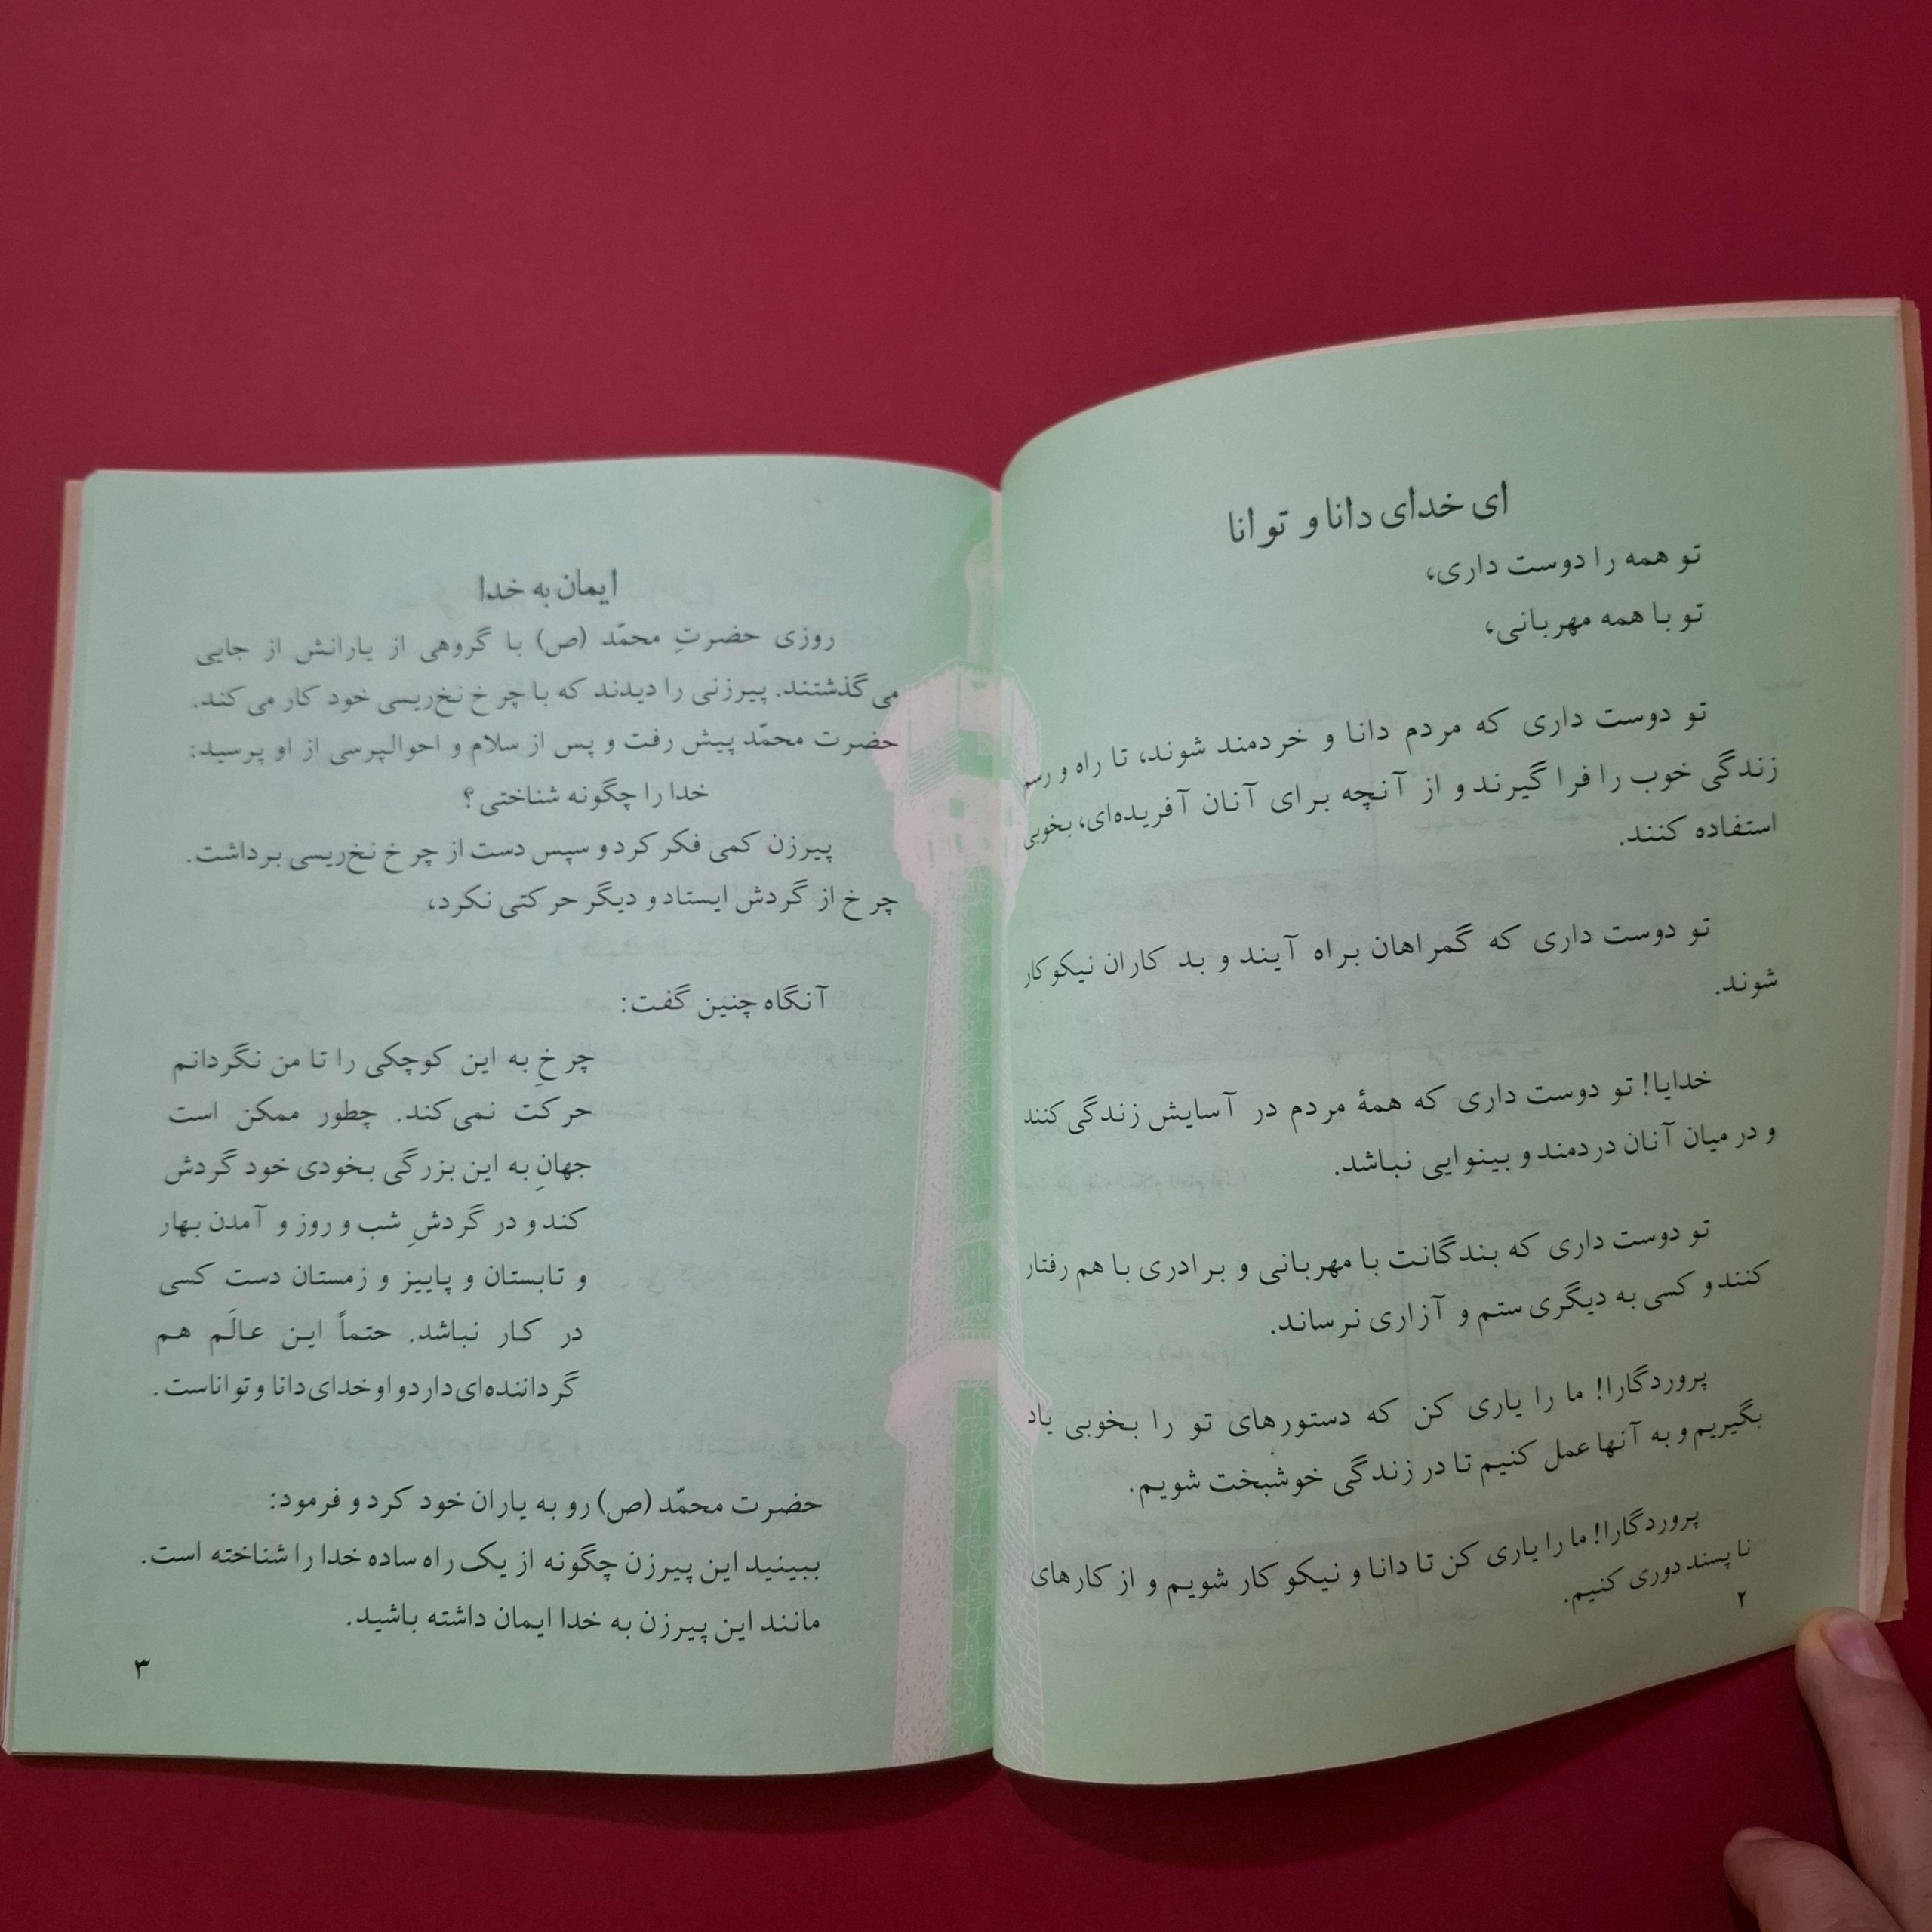 ای خدای دانا و توانا
تو همه را دوست داری،
تو با همه مهربانی،
تو دوست داری که مردم دانا و خردمند شوند، تا راه و رسم
زندگی خوب را فرا گیرند و از آنچه برای آنان آفریده‌ای، بخوبی
استفاده کنند.
تو دوست داری که گمراهان براه آیند و بد کاران نیکو کار
شوند.
خدایا! تو دوست داری که همهٔ مردم در آسایش زندگی کنند
و در میان آنان دردمند و بینوایی نباشد.
تو دوست داری که بندگانت با مهربانی و برادری با هم رفتار
کنند و کسی به دیگری ستم و آزاری نرساند.
پروردگارا! ما را یاری کن که دستورهای تو را بخوبی یاد
بگیریم و به آنها عمل کنیم تا در زندگی خوشبخت شویم.
پروردگارا! ما را یاری کن تا دانا و نیکو کار شویم و از کارهای
ناپسند دوری کنیم.
۲
ایمان به خدا
روزی حضرتِ محمّد (ص) با گروهی از یارانش از جایی
می‌گذشتند. پیرزنی را دیدند که با چرخ نخ‌ریسی خود کار می‌کند.
حضرت محمّد پیش رفت و پس از سلام و احوالپرسی از او پرسید:
خدا را چگونه شناختی؟
پیرزن کمی فکر کرد و سپس دست از چرخ نخ‌ریسی برداشت.
چرخ از گردش ایستاد و دیگر حرکتی نکرد،
آنگاه چنین گفت:
چرخِ به این کوچکی را تا من نگردانم
حرکت نمی‌کند. چطور ممکن است
جهانِ به این بزرگی بخودی خود گردش
کند و در گردشِ شب و روز و آمدن بهار
و تابستان و پاییز و زمستان دست کسی
در کار نباشد. حتماً این عالَم هم
گرداننده‌ای دارد و او خدای دانا و تواناست.
حضرت محمّد (ص) رو به یاران خود کرد و فرمود:
ببینید این پیرزن چگونه از یک راه ساده خدا را شناخته است.
مانند این پیرزن به خدا ایمان داشته باشید.
۳